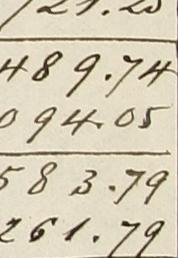 721.25
489.74
094.05
583.79
261.79